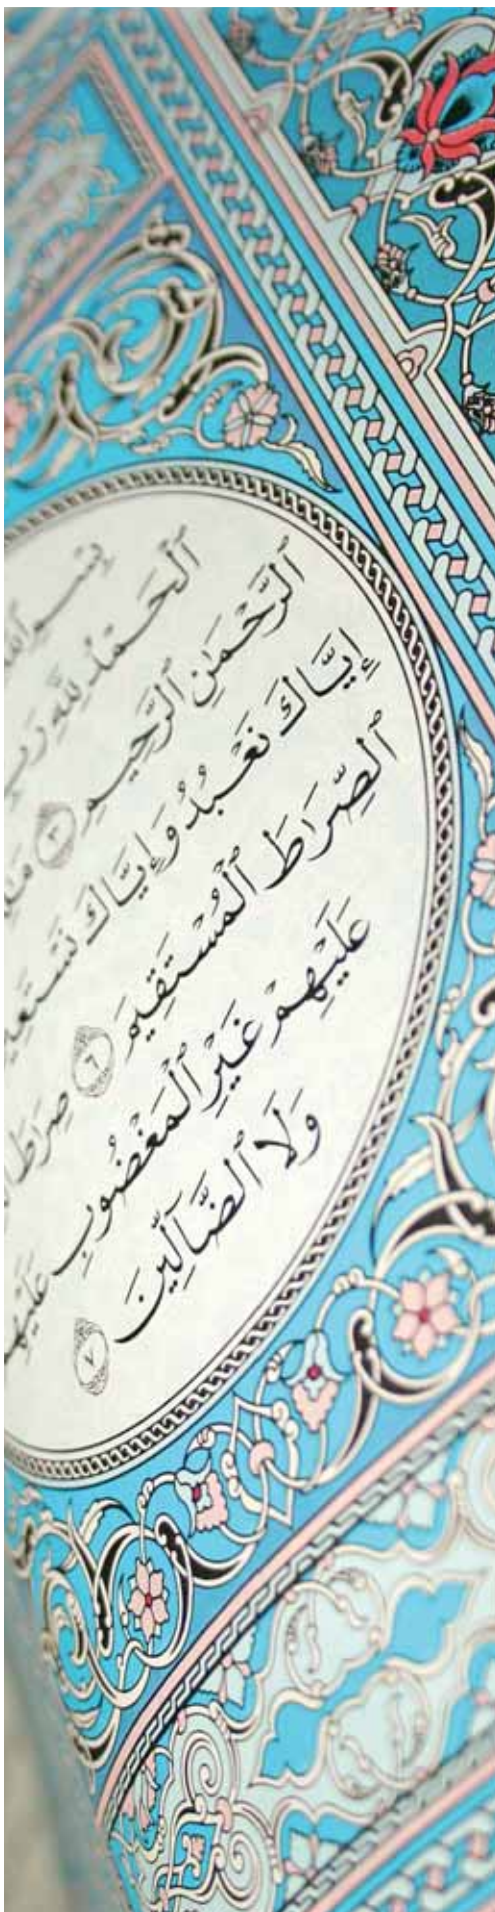 بِسْمِ ٱللَّهِ
ٱلْحَمْدُ لِلَّهِ رَبِّ
ٱلرَّحْمَٰنِ ٱلرَّحِيمِ ٣
إِيَّاكَ نَعْبُدُ وَإِيَّاكَ
ٱلصِّرَٰطَ ٱلْمُسْتَقِيمَ ٦ صِرَٰطَ
عَلَيْهِمْ غَيْرِ ٱلْمَغْضُوبِ
وَلَا ٱلضَّآلِّينَ ٧